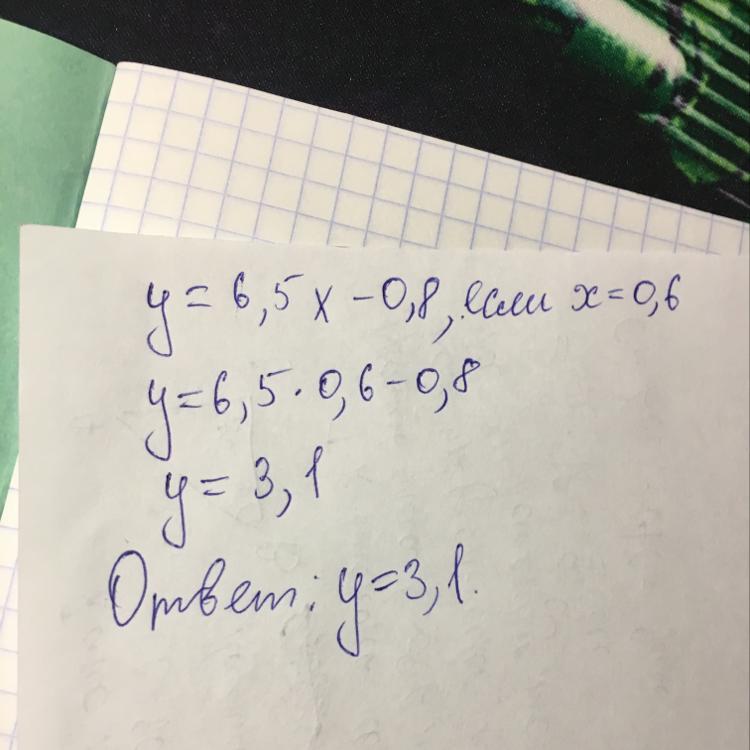 y = 6,5x - 0,8, если x = 0,6
y = 6,5 · 0,6 - 0,8
y = 3,1
Ответ: y = 3,1.